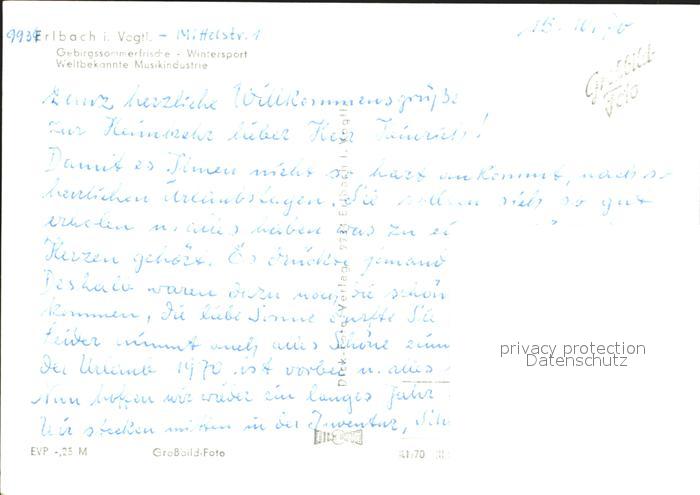 9934 Erlbach i. Vogtl. - Mittelstr. 1
Gebirgssommerfrische - Wintersport
Weltbekannte Musikindustrie
15. 10. 70
Großbild-
Foto
Ganz herzliche Willkommensgrüße
zur Heimkehr lieber Herr Heinrich!
Damit es Ihnen nicht so hart ankommt, nach so
herrlichen Urlaubstagen. Sie sollen sich so gut
erholen u. alles haben was zu
Herzen gehört. Es drückte jemand
Deshalb waren dazu noch die schön
kommen, die liebe Sonne durfte Sie
Leider nimmt auch alles Schöne ein
Der Urlaub 1970 ist vorbei u. alles
Nun hoffen wir wieder ein langes Jahr
Wir stecken mitten in der Inventur, Sch
Dick-Foto-Verlag, 9934 Erlbach i. Vogtl.
privacy protection
Datenschutz
EVP -,25 M
Großbild-Foto